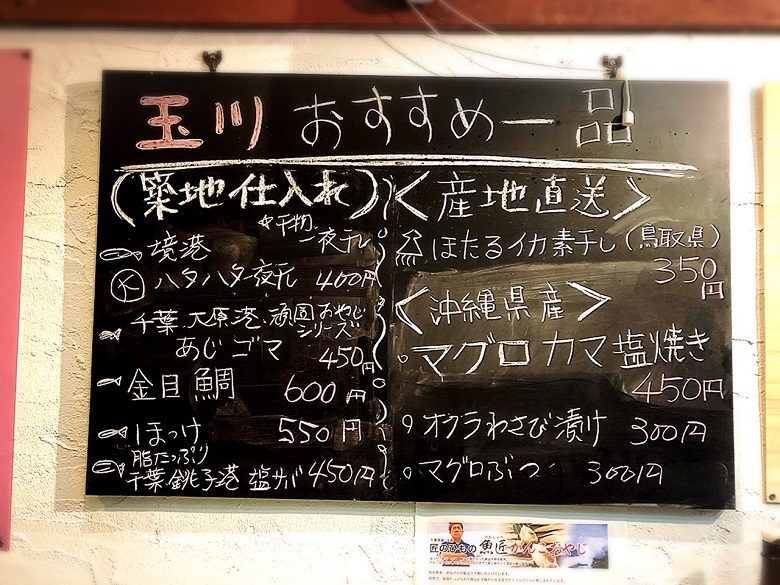 玉川 おすすめ一品
(築地仕入れ)
☆干物 一夜干
境港
ハタハタ一夜干 400円
千葉、大原港、頑固おやじシリーズ
あじゴマ 450円
金目鯛 600円
ほっけ 550円
脂たっぷり
千葉銚子港 塩サバ 450円
<産地直送>
ほたるイカ素干し(鳥取県)
350円
<沖縄県産>
マグロカマ塩焼き
450円
オクラわさび漬け 300円
マグロぶつ 300円
匠のひもの 魚匠がんこおやじ